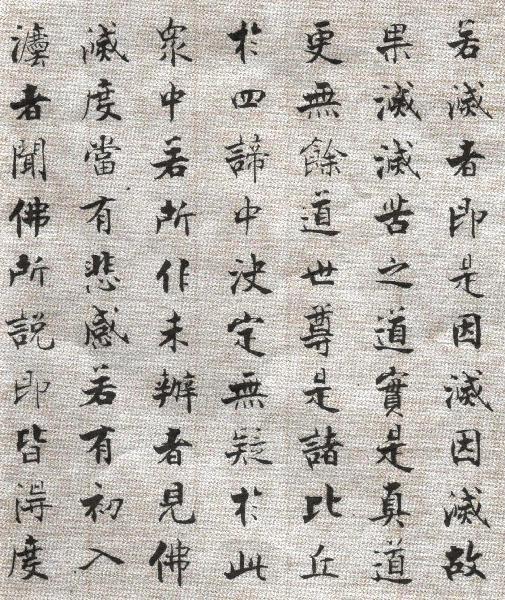 若滅者即是因滅因滅故
果滅滅苦之道實是真道
更無餘道世尊是諸比丘
於四諦中決定無疑於此
衆中若所作未辦者見佛
滅度當有悲感若有初入
灋者聞佛所説即皆得度